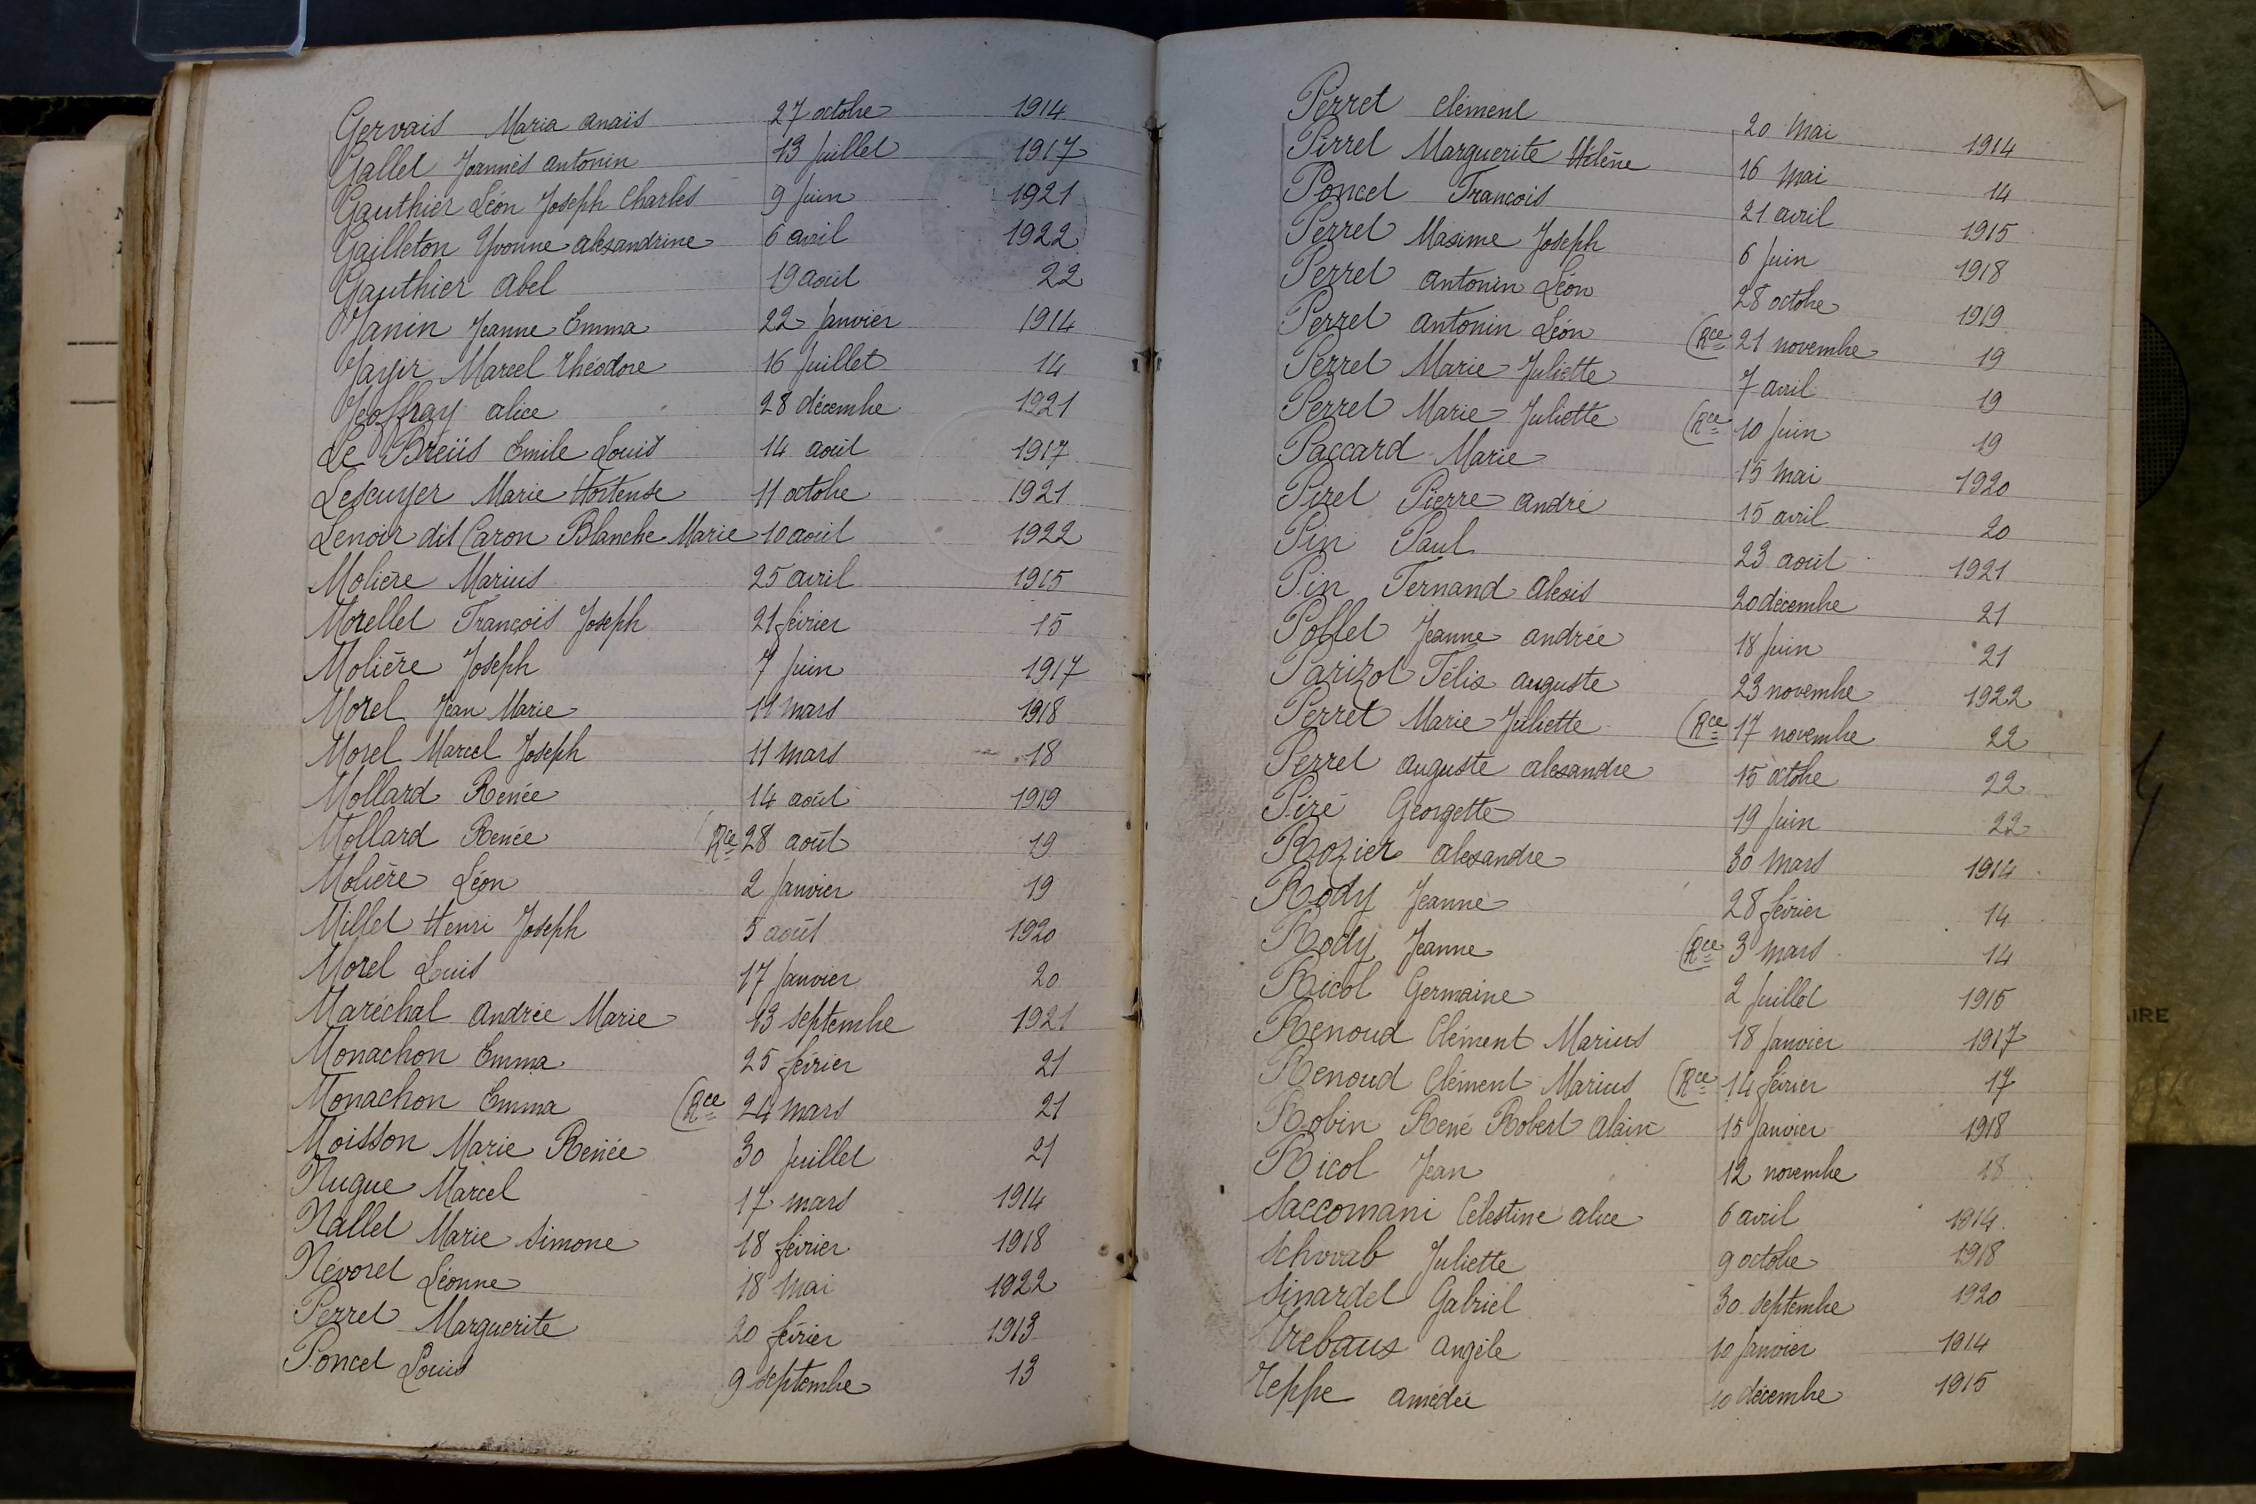 Gervais Maria anaïs 27 octobre 1914
Gallet Joannès antonin 13 Juillet 1917
Gauthier Léon Joseph Charles 9 Juin 1921
Gailleton Yvonne alexandrine 6 avril 1922
Gauthier Abel 19 août 22
Janin Jeanne Emma 22 Janvier 1914
Jayir Marcel Théodore 16 Juillet 14
Jeoffray alice 28 décembre 1921
Le Breüs Emile Louis 14 août 1917
Lescuyer Marie Hortense 11 octobre 1921
Lenoir dit Caron Blanche Marie 10 août 1922
Molière Marius 25 avril 1915
Morellet François Joseph 21 février 15
Molière Joseph 7 Juin 1917
Morel Jean Marie 19 mars 1918
Morel Marcel Joseph 11 mars 18
Mollard Renée 14 août 1919
Mollard Renée (Rce 28 août 19
Molière Léon 2 Janvier 19
Millet Henri Joseph 5 août 1920
Morel Louis 17 Janvier 20
Maréchal Andrée Marie 13 septembre 1921
Monachon Emma 25 février 21
Monachon Emma (Rce 24 mars 21
Moisson Marie Renée 30 Juillet 21
Nugue Marcel 17 mars 1914
Nallet Marie Simone 18 février 1918
Névoret Léonne 18 Mai 1922
Perret Marguerite 20 février 1913
Poncet Louis 9 septembre 13
Perret Clément 20 Mai 1914
Pirret Marguerite Hélène 16 Mai 14
Poncet François 21 avril 1915
Perret Maxime Joseph 6 Juin 1918
Perret antonin Léon 28 octobre 1919
Perret antonin Léon (Rce 21 novembre 19
Perret Marie Juliette 7 avril 19
Perret Marie Juliette (Rce 10 Juin 19
Paccard Marie 15 Mai 1920
Pizet Pierre andré 15 avril 20
Pin Paul 23 août 1921
Pin Fernand Alexis 20 décembre 21
Pollet Jeanne andrée 18 Juin 21
Parizot Félix auguste 23 novembre 1922
Perret Marie Juliette (Rce 17 novembre 22
Perret auguste alexandre 15 octobre 22
Piré Georgette 19 Juin 22
Rozier alexandre 30 Mars 1914
Rody Jeanne 28 février 14
Rody Jeanne (Rce 3 mars 14
Ricol Germaine 2 Juillet 1915
Renoud Clément Marius 18 Janvier 1917
Renoud Clément Marius (Rce 14 février 17
Robin René Robert Alain 15 Janvier 1918
Ricol Jean 12 novembre 18
Saccomani Célestine alice 6 avril 1914
Schwab Juliette 9 octobre 1918
Sinardet Gabriel 30 septembre 1920
Trebaux Angèle 10 Janvier 1914
Teppe amédée 10 décembre 1915
AIRE